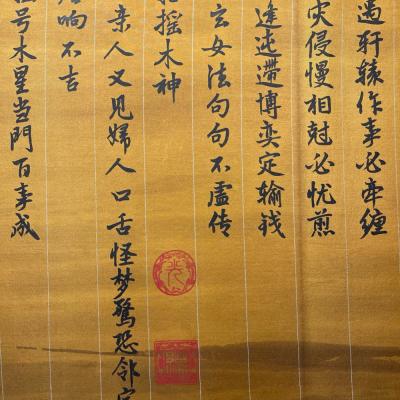 遇轩辕作事必牵缠
灾侵慢相尅必忧煎
逢迍滞博奕定输钱
玄女法句句不虚传
摇木神
亲人又见婦人口舌怪梦驚恐邻
响不吉
号木星当門百事成